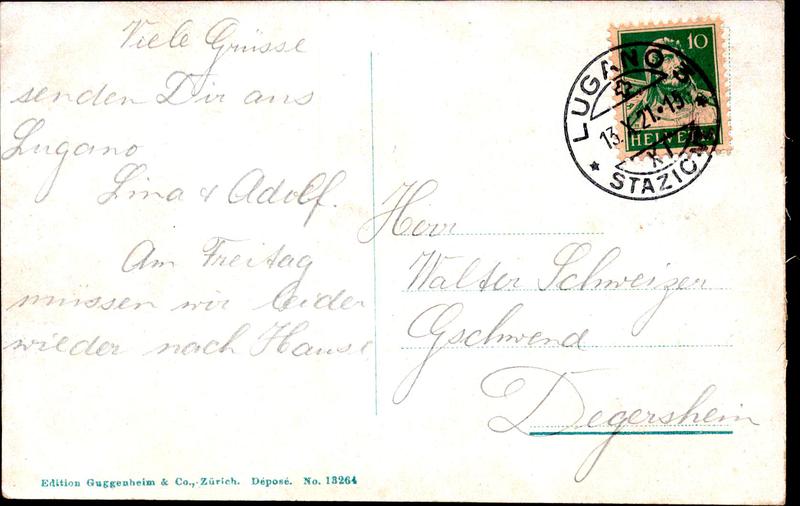 Viele Grüsse
senden Dir aus
Lugano
Lina & Adolf.
Am Freitag
müssen wir leider
wieder nach Hause
10
HELVETIA
LUGANO 3
13.X.21.-19
STAZIONE
Herr
Walter Schweizer
Gschwend
Degersheim
Edition Guggenheim & Co., Zürich. Déposé. No. 13264